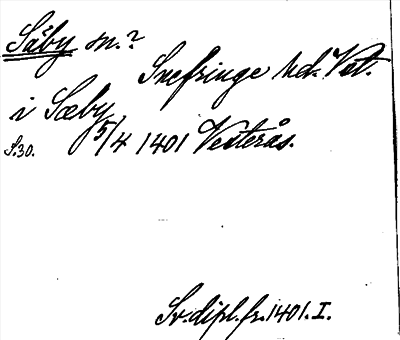 Säby sn.?
Snefringe hd. Vstm.
i Sæby
5/4 1401 Vesterås.
S.30.
Sv.dipl.fr.1401.I.